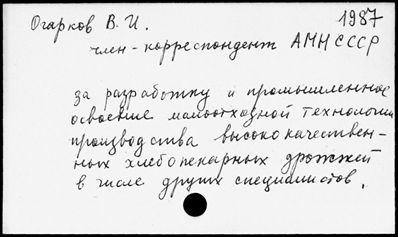 Огарков В. И.
1987
член-корреспондент АМН СССР
за разработку и промышленное
освоение малоотходной технологии
производства высококачествен-
ных хлебопекарных дрожжей
в числе других специалистов.